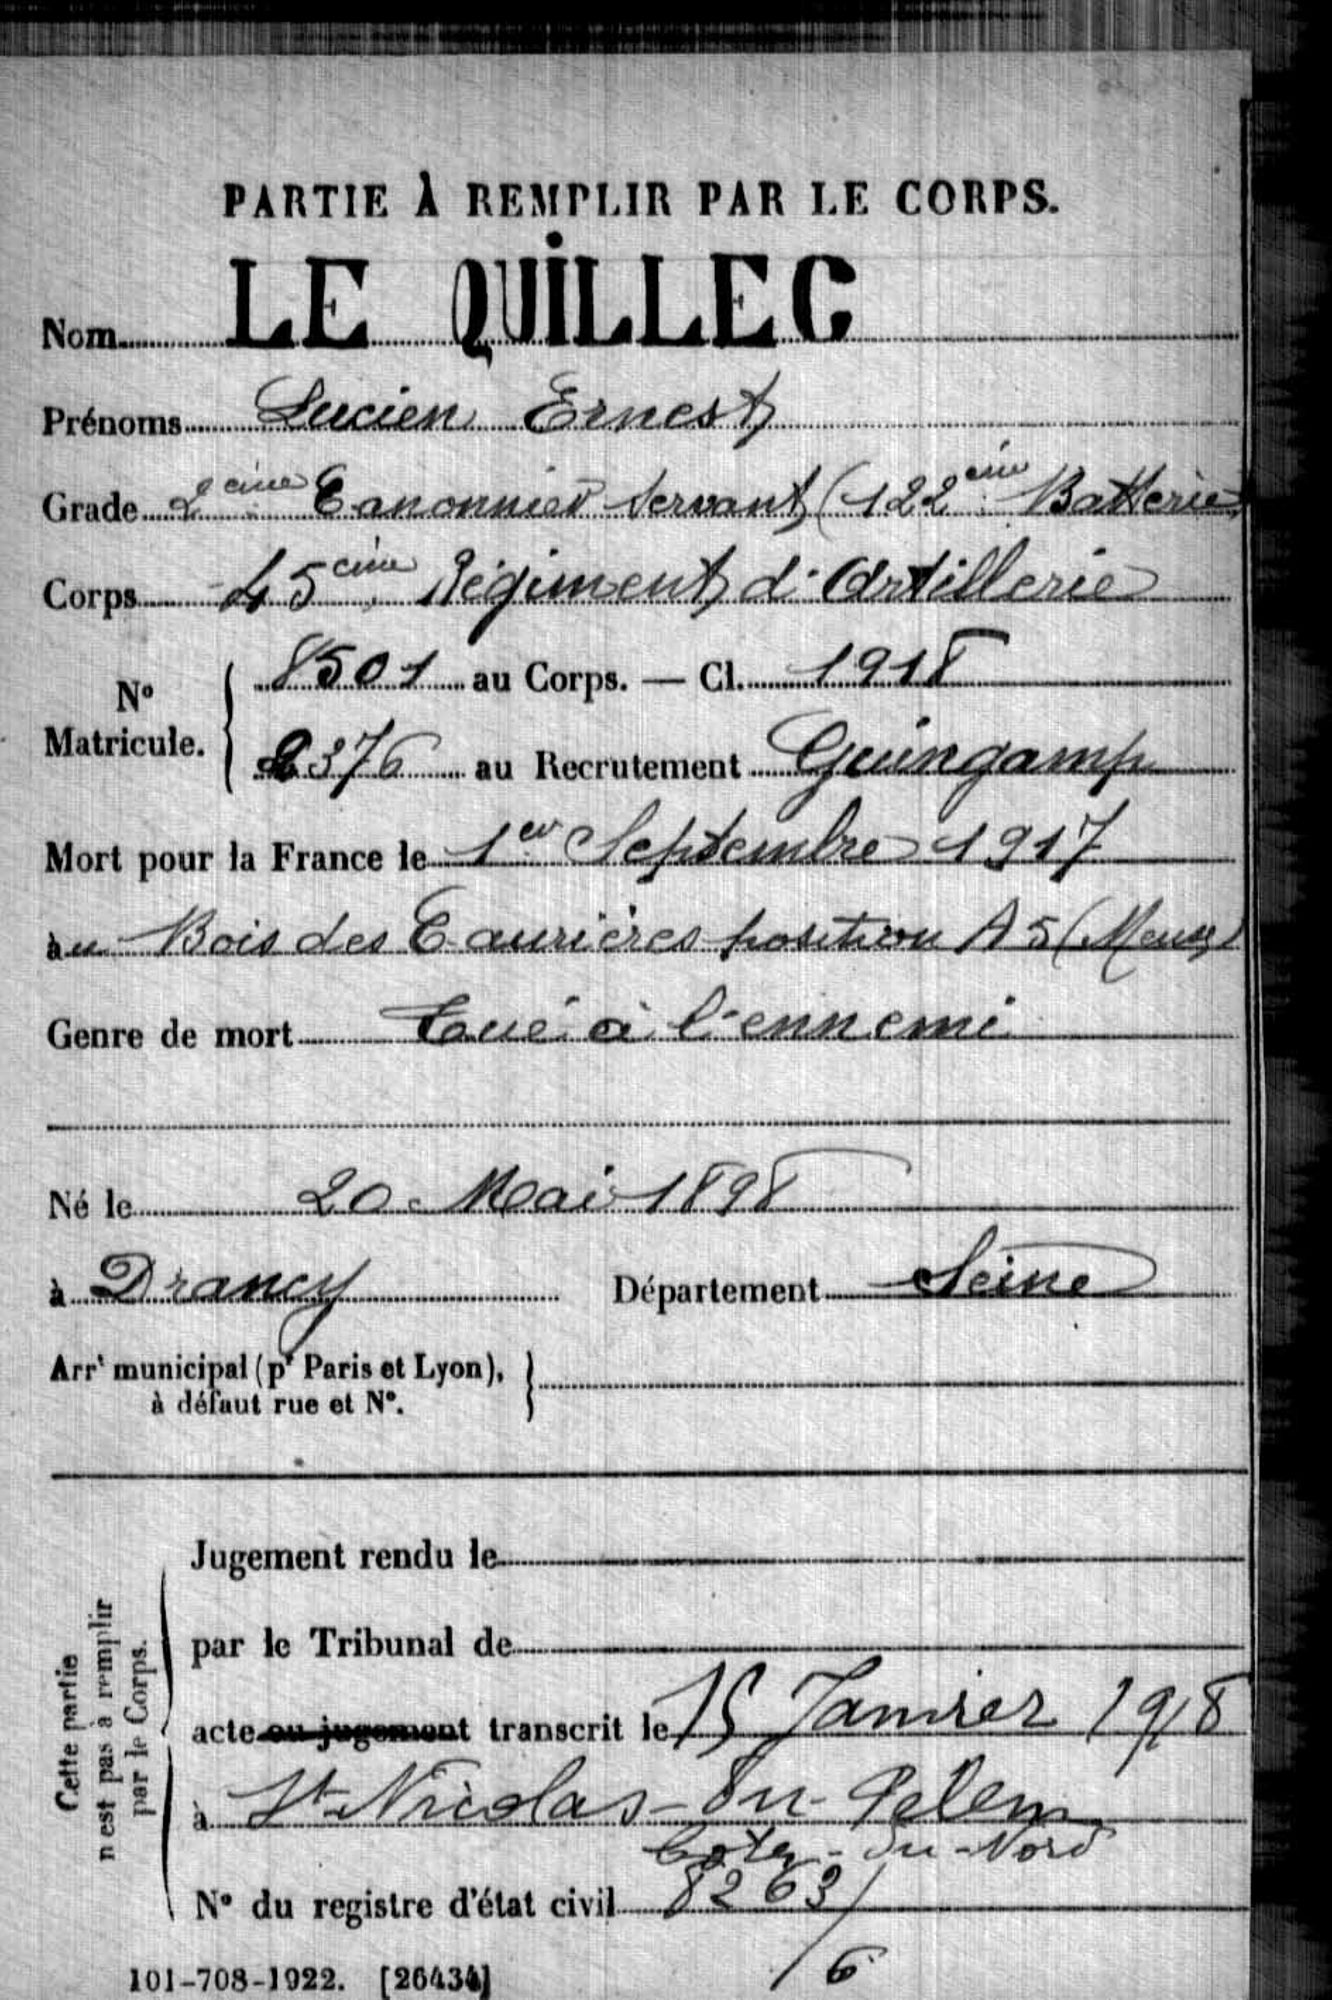 PARTIE À REMPLIR PAR LE CORPS.
Nom LE QUILLEC
Prénoms Lucien Ernest
Grade 2ème Canonnier Servant (122ème Batterie)
Corps 45ème Régiment d'Artillerie
N° Matricule. { 8501 au Corps. — Cl. 1918
2376 au Recrutement Guingamp
Mort pour la France le 1er Septembre 1917
au Bois des Caurières position A5 (Meuse)
Genre de mort Tué à l'ennemi
Né le 20 Mai 1898
à Drancy Département Seine
Arrt municipal (pr Paris et Lyon), à défaut rue et N°. }
Cette partie n'est pas à remplir par le Corps.
Jugement rendu le
par le Tribunal de
acte ou jugement transcrit le 15 Janvier 1918
à St-Nicolas-du-Pelem
Côtes-du-Nord
N° du registre d'état civil 8263/
/6
101-708-1922. [26434]